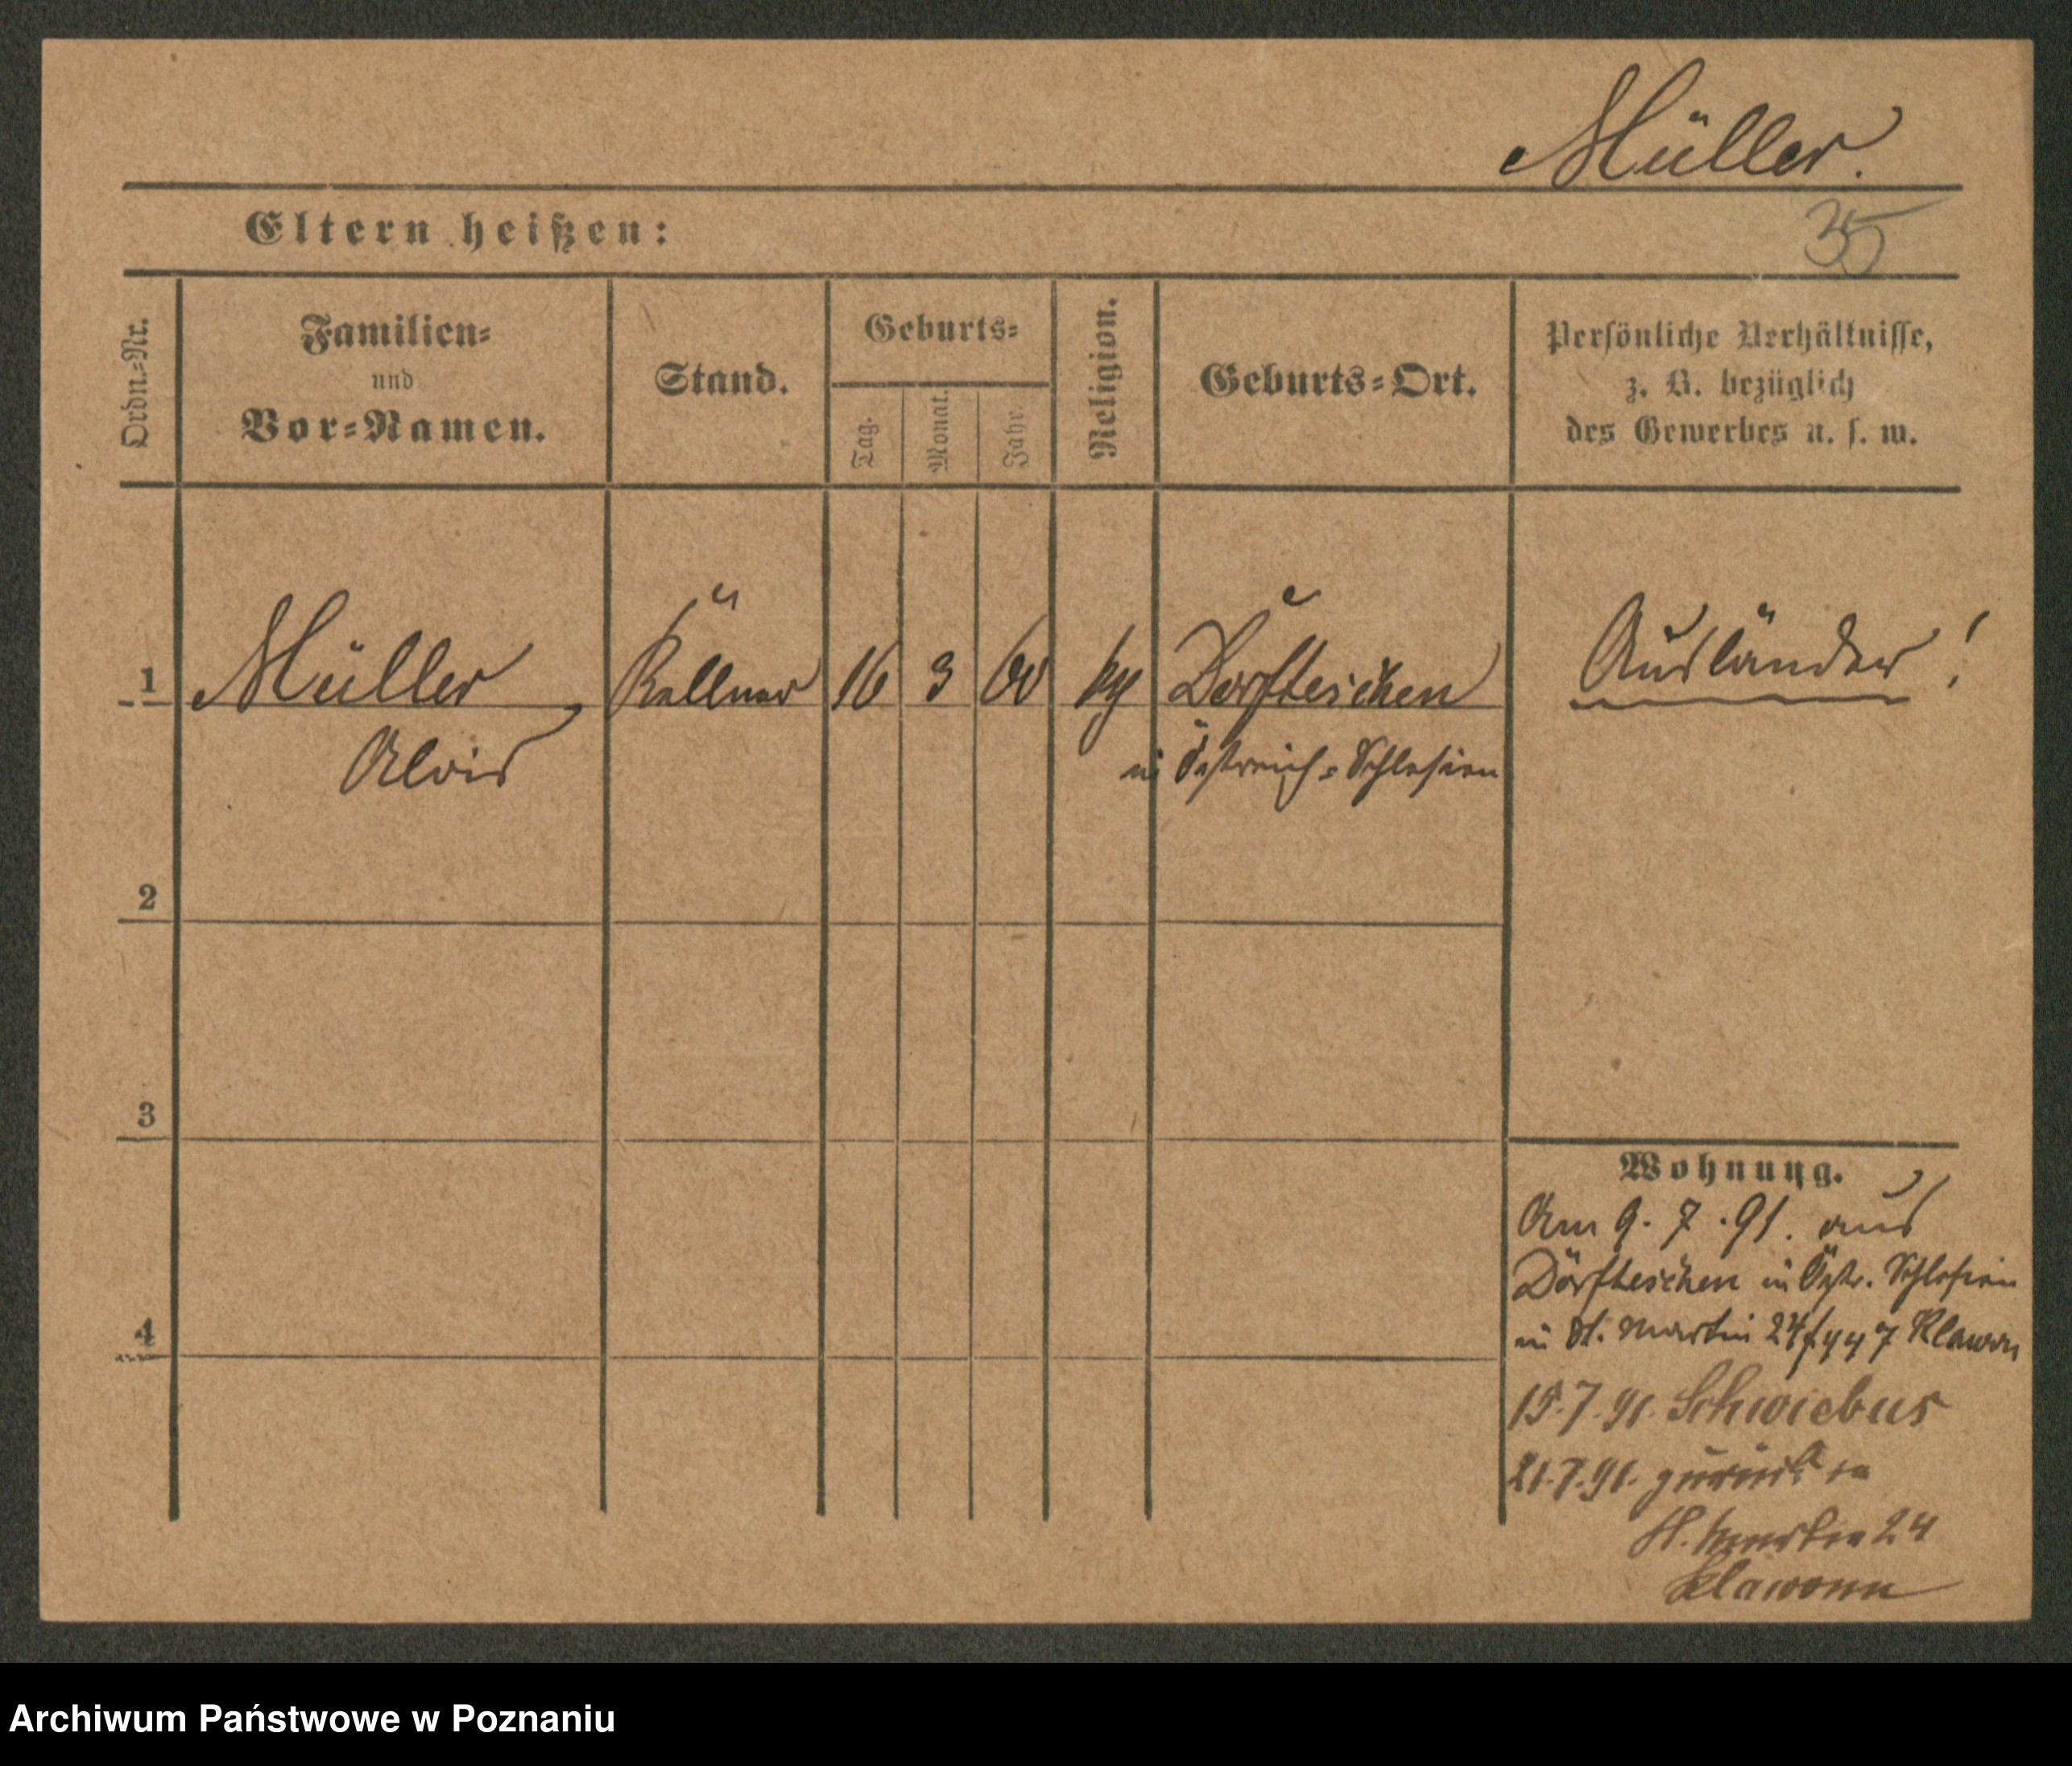 Müller.
Eltern heißen:
35
Ordn.-Nr.
Familien-
und
Vor-Namen.
Stand.
Geburts-
Tag.
Monat.
Jahr.
Religion.
Geburts-Ort.
Persönliche Verhältnisse,
z. B. bezüglich
des Gewerbes u. s. w.
1 Müller, Kellner 16 3 60 Dörfteschen Ausländer!
Alois in Östreich-Schlesien
2
3
4
Wohnung.
Am 9.7.91. aus
Dörfteschen in Östr. Schlesien
in St. Martin 24 Klawon
15.7.91. Schwiebus
21.7.91. zurück
St. Martin 24
Klawonn
Archiwum Państwowe w Poznaniu